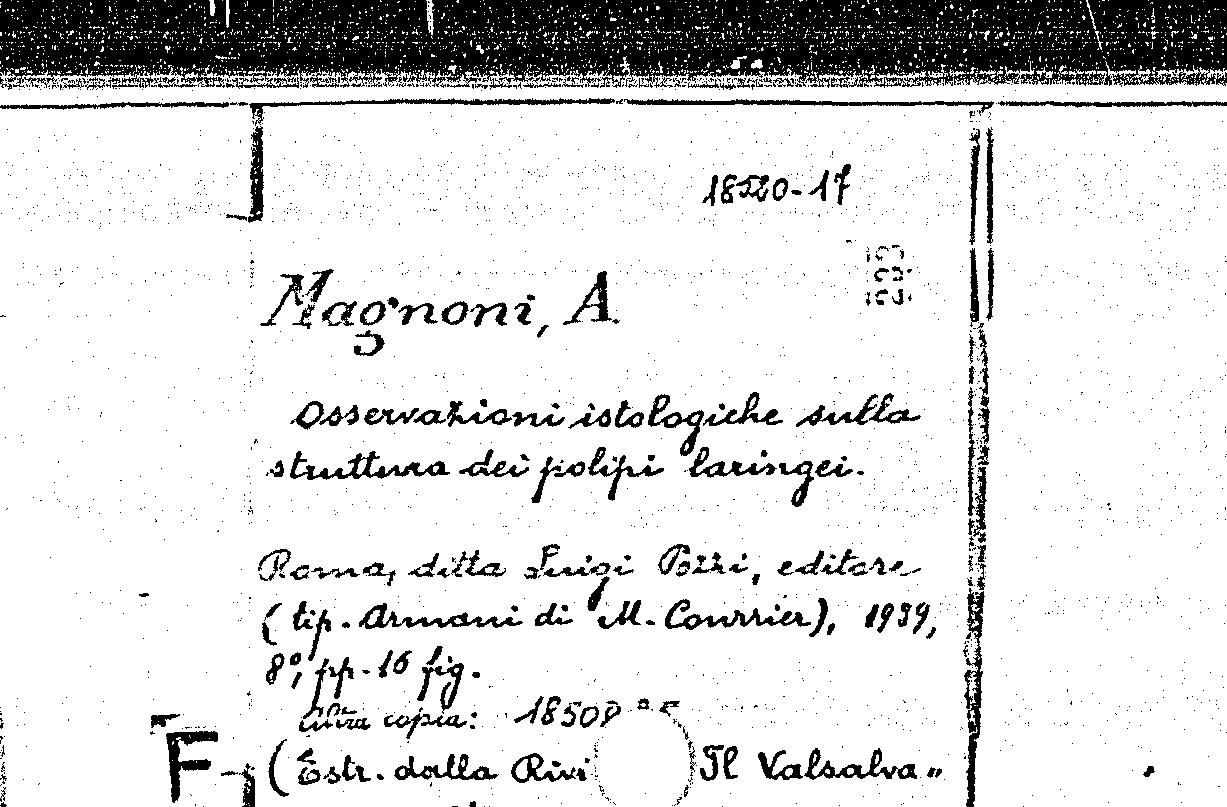 18520-17
Magnoni, A.
Osservazioni istologiche sulla
struttura dei polipi laringei.
Roma, ditta Luigi Pozzi, editore
(tip. Armani di M. Courrier), 1939,
8°, pp. 16 fig.
Altra copia: 18508
F
(Estr. dalla Il Valsalva„